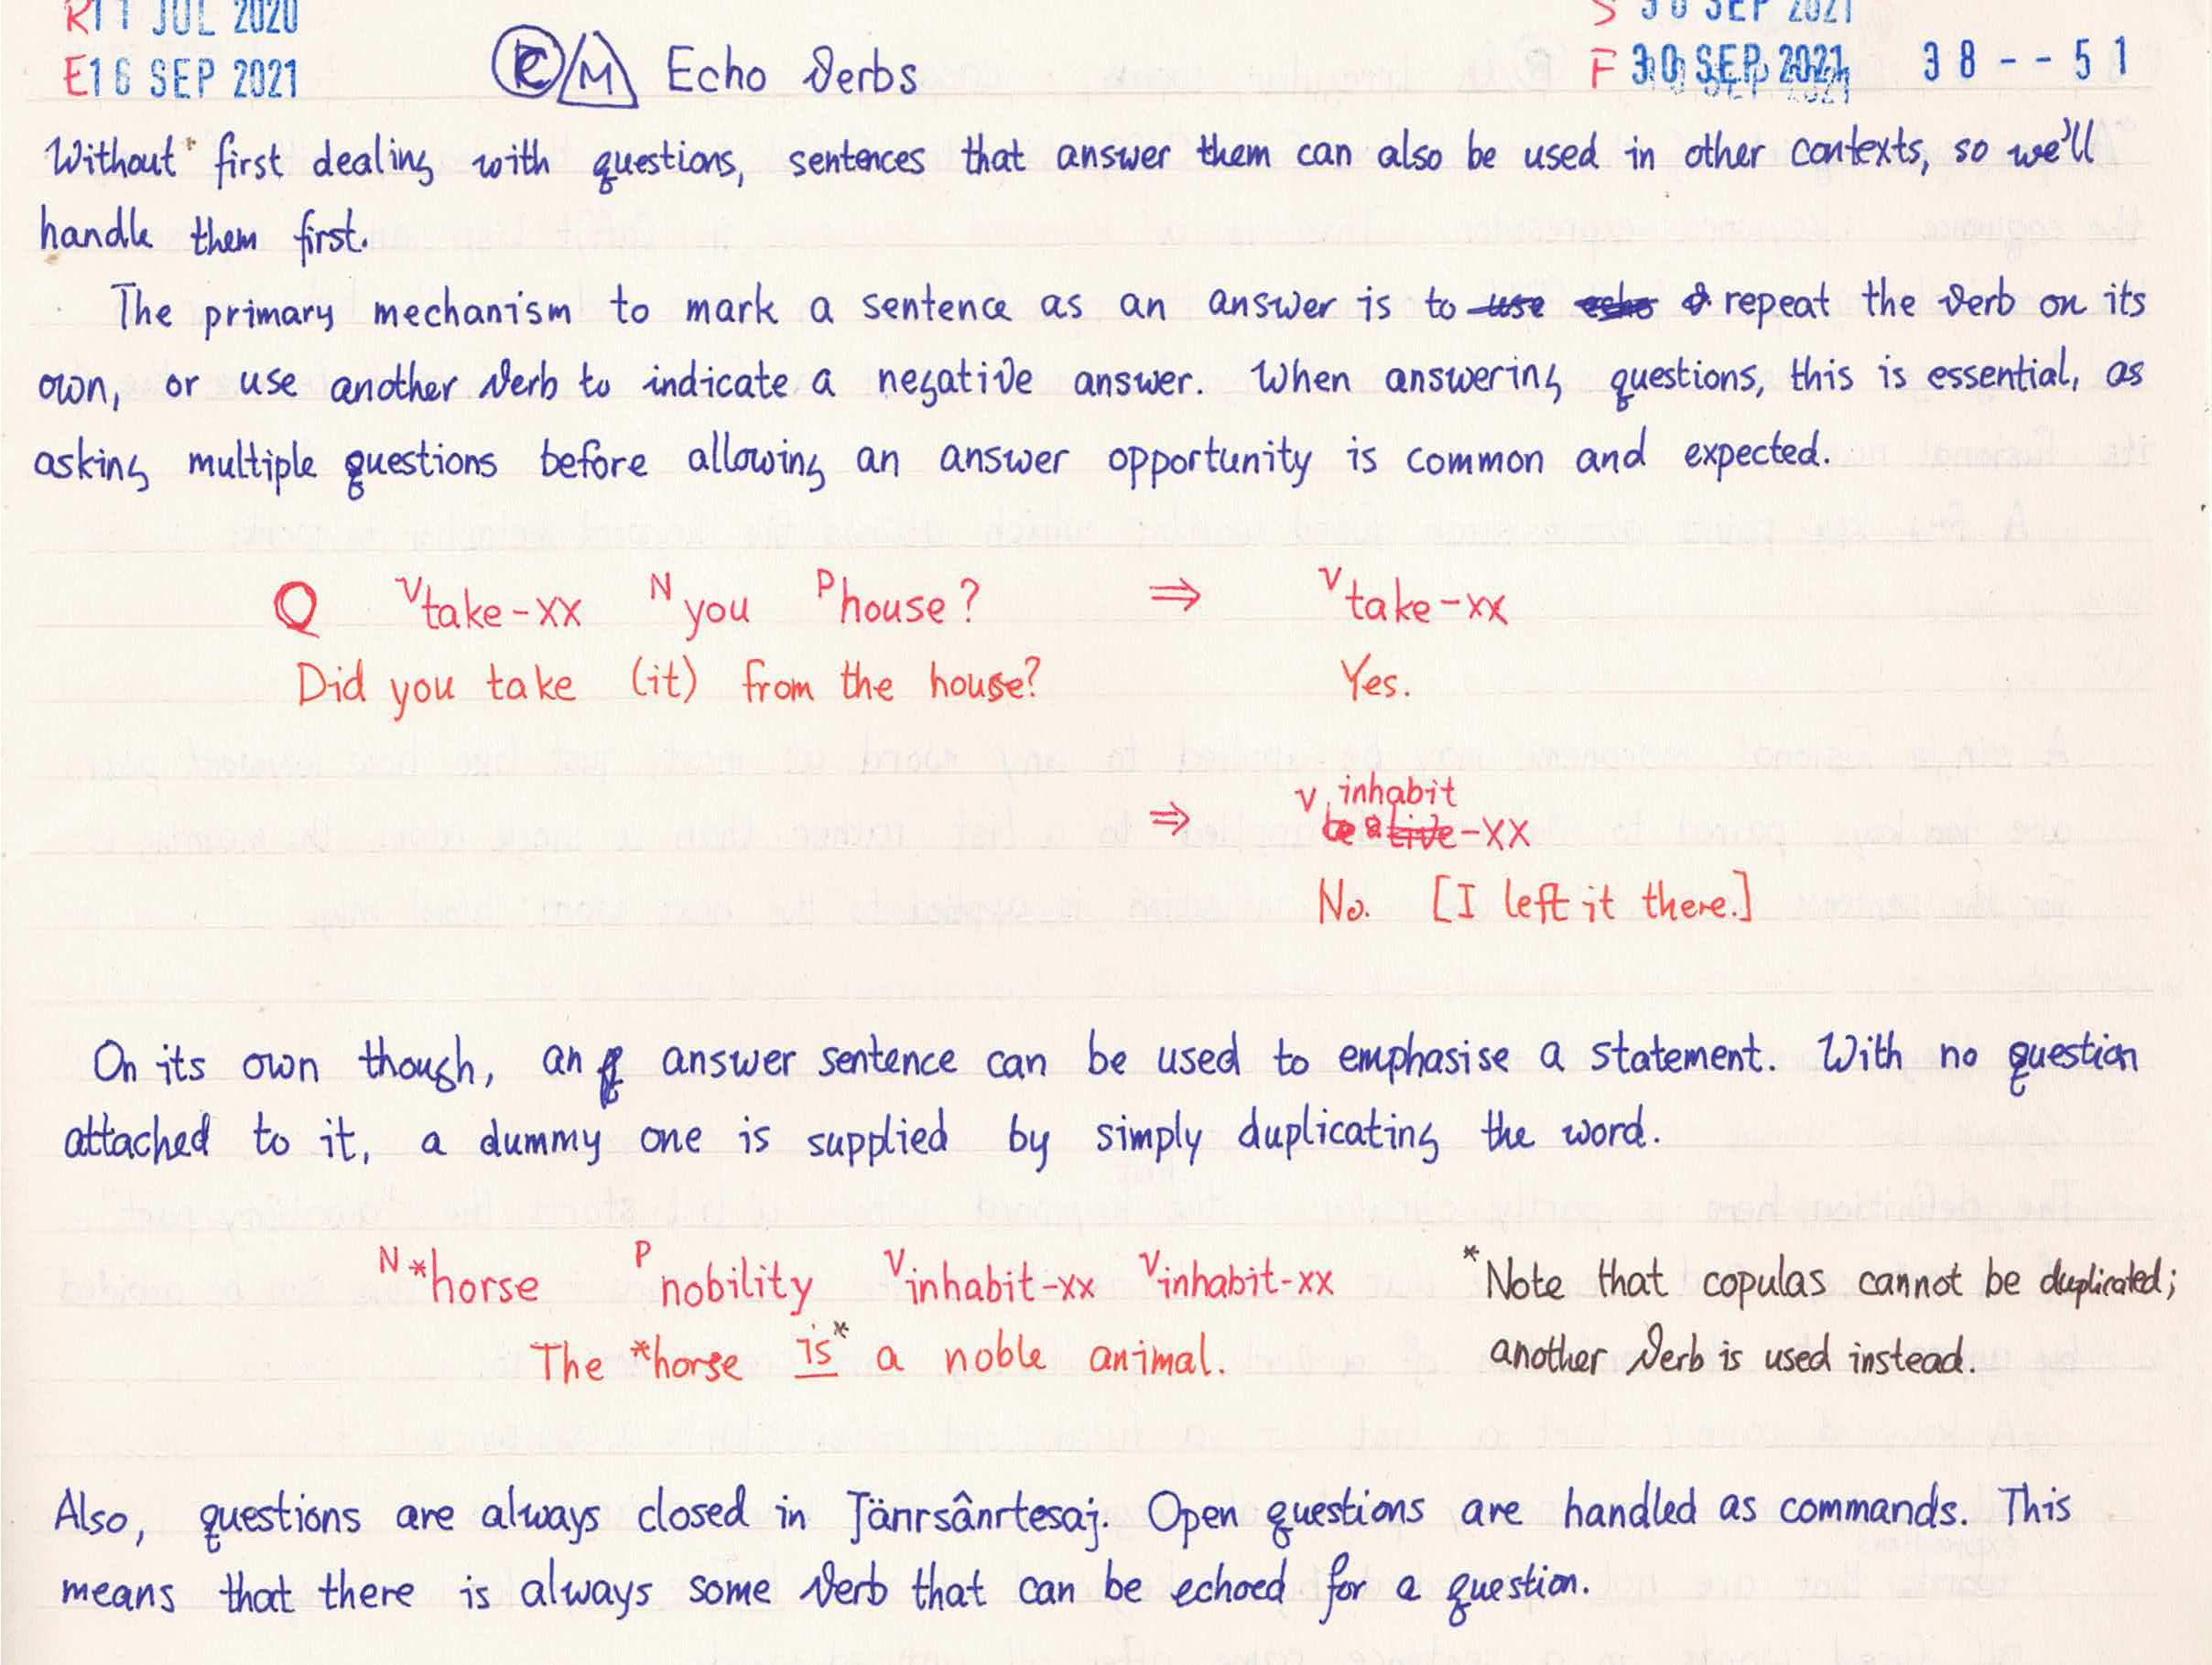 R11 JUL 2020
S 30 SEP 2021
E16 SEP 2021
C/M Echo Verbs
F 30 SEP 2021 38--51
Without first dealing with questions, sentences that answer them can also be used in other contexts, so we'll
handle them first.
The primary mechanism to mark a sentence as an answer is to use echo repeat the verb on its
own, or use another verb to indicate a negative answer. When answering questions, this is essential, as
asking multiple questions before allowing an answer opportunity is common and expected.
Q V take-xx N you P house? ⇒ V take-xx
Did you take (it) from the house? Yes.
V inhabit
⇒ be alive-xx
No. [I left it there.]
On its own though, an answer sentence can be used to emphasise a statement. With no question
attached to it, a dummy one is supplied by simply duplicating the word.
N *horse P nobility V inhabit-xx V inhabit-xx *Note that copulas cannot be duplicated;
The *horse is* a noble animal. another verb is used instead.
Also, questions are always closed in Jänrsânrtesaj. Open questions are handled as commands. This
means that there is always some verb that can be echoed for a question.